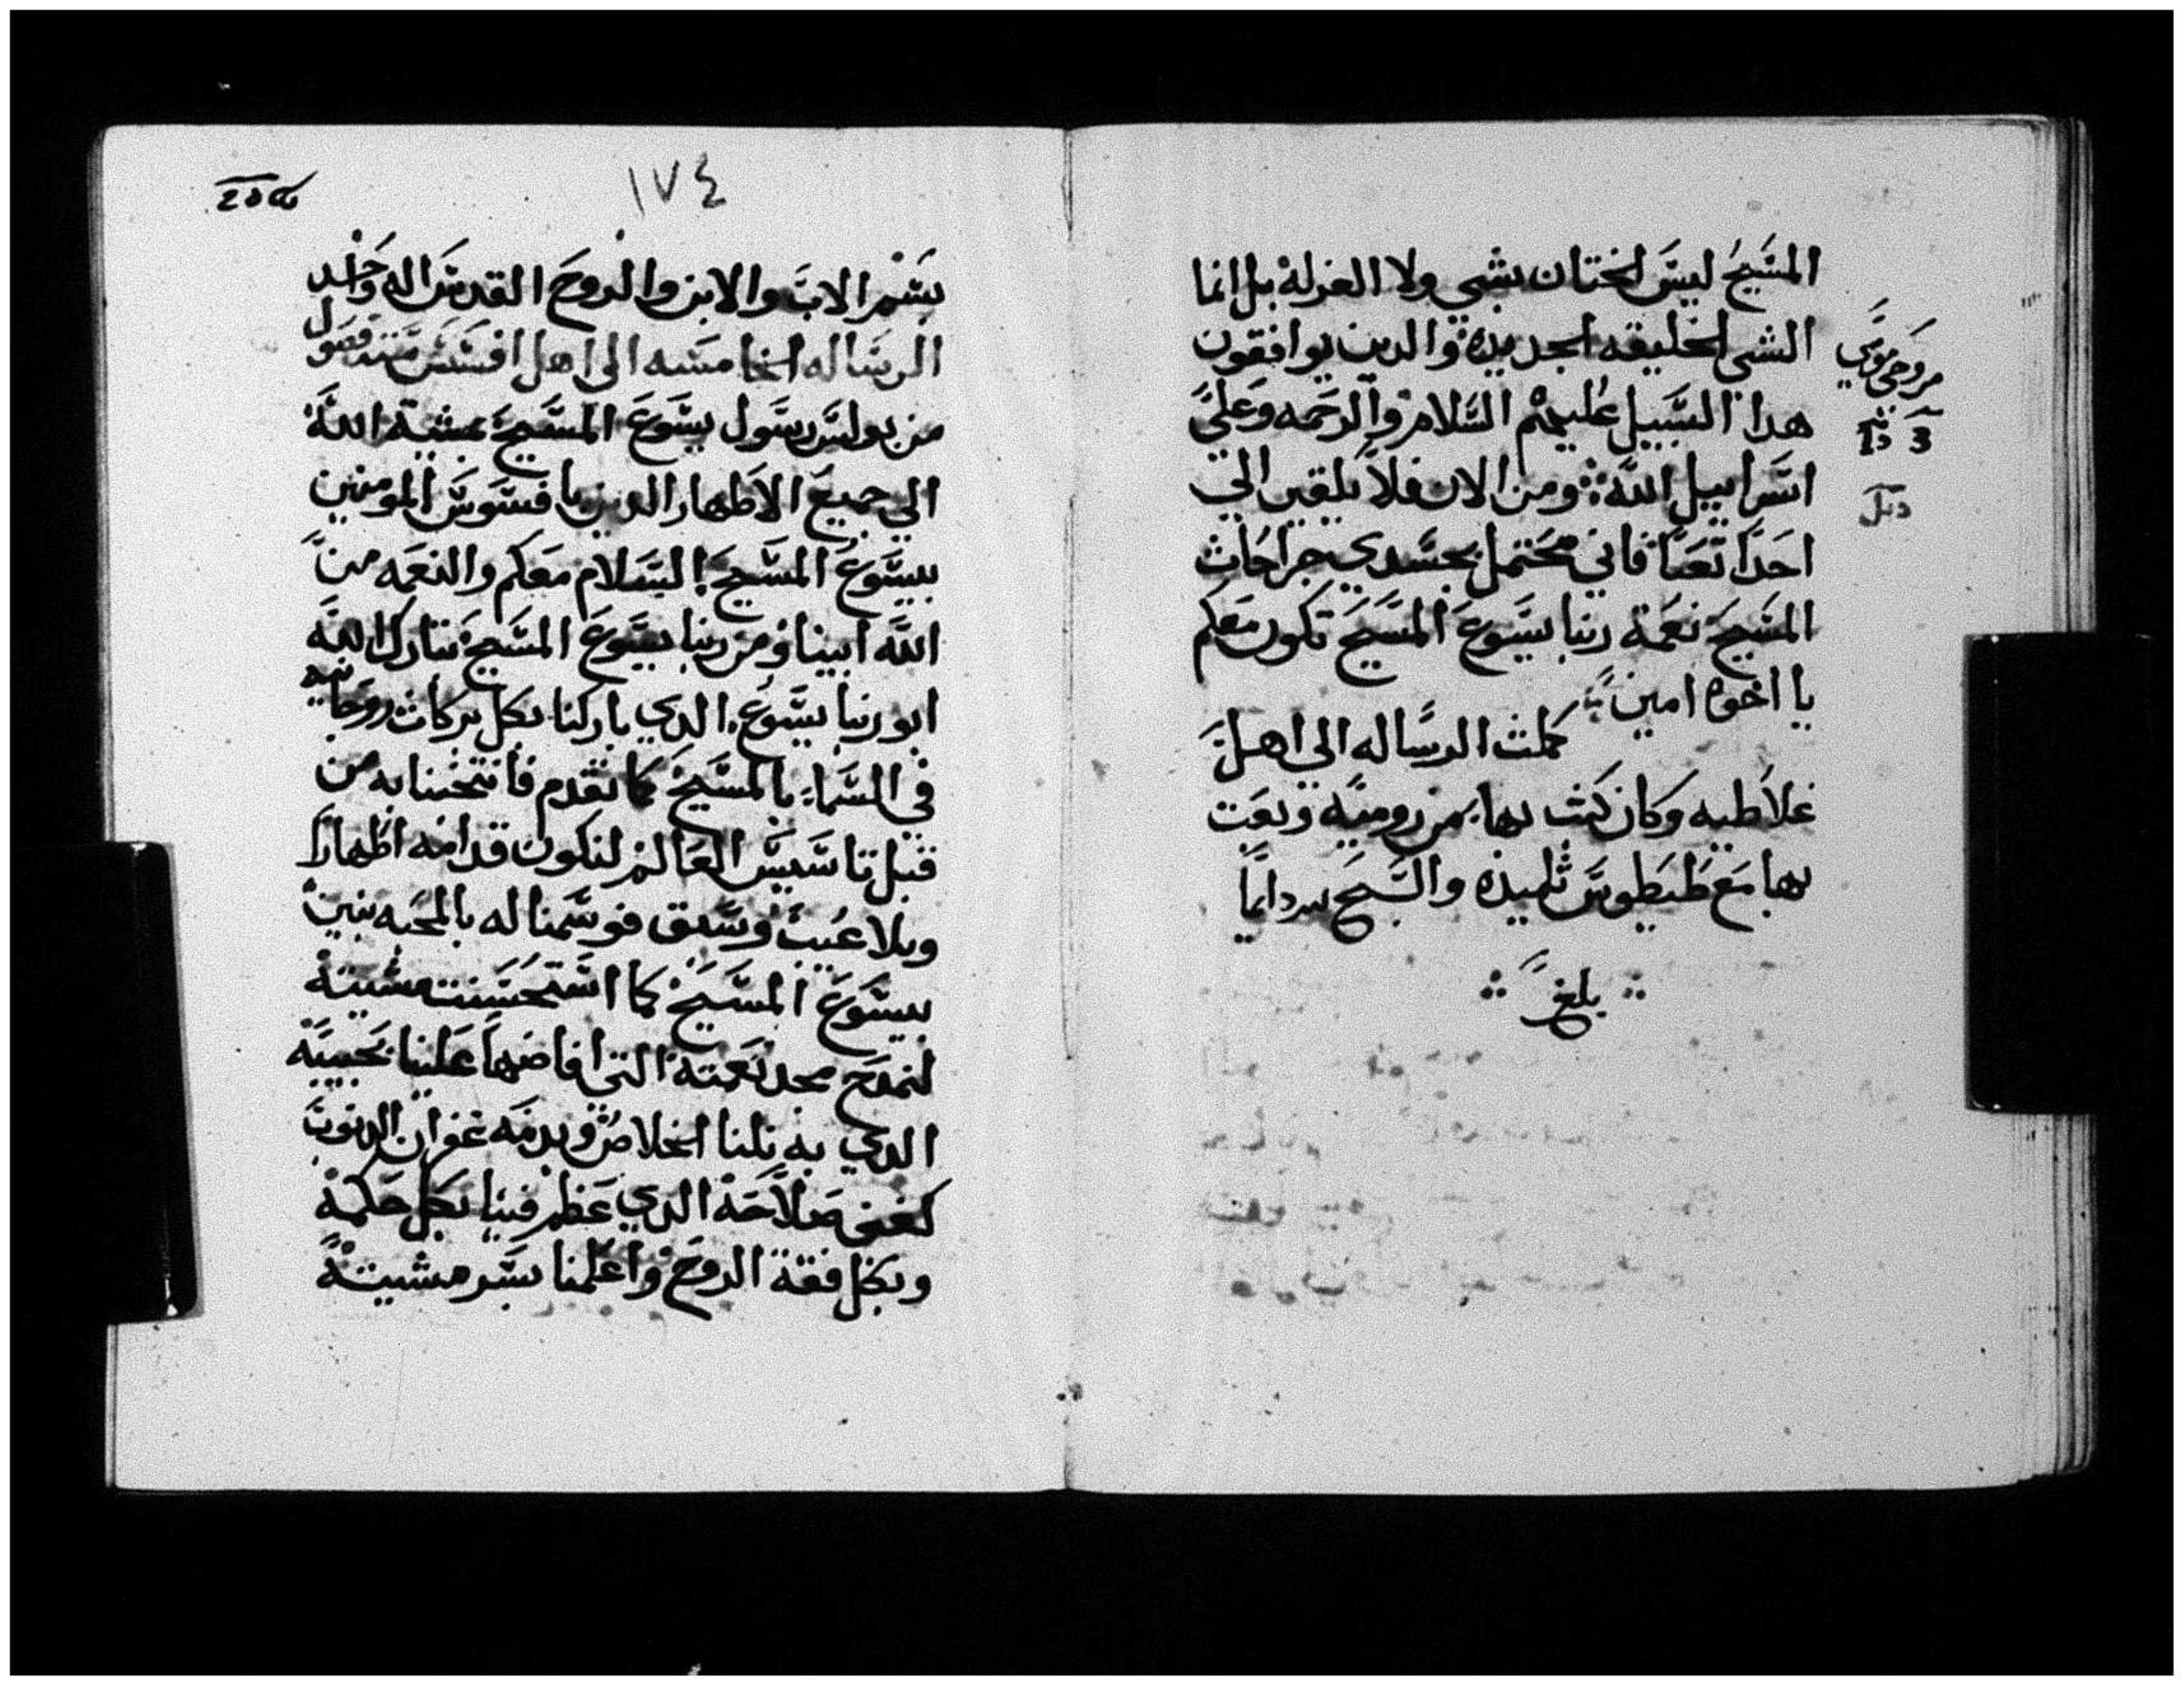 المسيح ليس الختان بشي ولا الغرلة بل انما
الشي الخليقه الجديدة والدين يوافقون
هدا السبيل عليهم السلام والرحمه وعلي
اسراييل الله ومن الان فلا يلقين الي
احدا تعبا فاني محتمل بجسدي جراحات
المسيح نعمة ربنا يسوع المسيح تكون معكم
يا اخوه امين
كملت الرساله الي اهل
غلاطيه وكان كتب بها من روميه وبعت
بها مع طيطوس تلميذه والسبح لله دايما
بلغ
١٧٤
بسم الاب والابن والروح القدس اله واحد
الرساله الخامسه الى اهل افسس ستة فصول
من بولس رسول يسوع المسيح بمشية الله
الي جميع الاطهار الدين بافسوس المومنين
بيسوع المسيح السلام معكم والنعمه من
الله ابينا ومن ربنا يسوع المسيح تبارك الله
ابو ربنا يسوع الدي باركنا بكل بركات روحانيه
في السماء بالمسيح كما تقدم فانتخبنا به من
قبل تاسيس العالم لنكون قدامه اطهارا
وبلا عيب وسبق فوسمنا له بالمحبه بنين
بيسوع المسيح كما استحسنت مشيته
لنمدح مجد نعمته التي افاضها علينا بحبيبه
الدي به نلنا الخلاص وبدمه غفران الدنوب
كغنى صلاحه الدي عظم فينا بكل حكمة
وبكل فقه الروح واعلمنا بسر مشيته